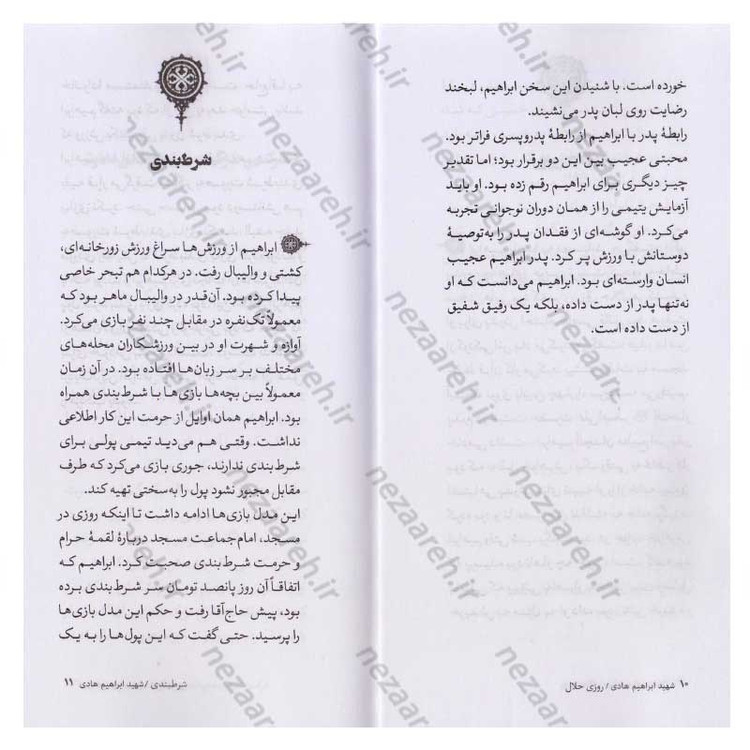 خورده است. با شنیدن این سخن ابراهیم، لبخند
رضایت روی لبان پدر می‌نشیند.
رابطهٔ پدر با ابراهیم از رابطهٔ پدروپسری فراتر بود.
محبتی عجیب بین این دو برقرار بود؛ اما تقدیر
چیز دیگری برای ابراهیم رقم زده بود. او باید
آزمایش یتیمی را از همان دوران نوجوانی تجربه
می‌کرد. او گوشه‌ای از فقدان پدر را به‌توصیهٔ
دوستانش با ورزش پر کرد. پدر ابراهیم عجیب
انسان وارسته‌ای بود. ابراهیم می‌دانست که او
نه‌تنها پدر از دست داده، بلکه یک رفیق شفیق
از دست داده است.
۱۰ شهید ابراهیم هادی / روزی حلال
شرط‌بندی
ابراهیم از ورزش‌ها سراغ ورزش زورخانه‌ای،
کشتی و والیبال رفت. در هرکدام هم تبحر خاصی
پیدا کرده بود. آن‌قدر در والیبال ماهر بود که
معمولاً تک‌نفره در مقابل چند نفر بازی می‌کرد.
آوازه و شهرت او در بین ورزشکاران محله‌های
مختلف بر سر زبان‌ها افتاده بود. در آن زمان
معمولاً بین بچه‌ها بازی‌ها با شرط‌بندی همراه
بود. ابراهیم همان اوایل از حرمت این کار اطلاعی
نداشت. وقتی هم می‌دید تیمی پولی برای
شرط‌بندی ندارند، جوری بازی می‌کرد که طرف
مقابل مجبور نشود پول را به‌سختی تهیه کند.
این مدل بازی‌ها ادامه داشت تا اینکه روزی در
مسجد، امام‌جماعت مسجد دربارهٔ لقمهٔ حرام
و حرمت شرط‌بندی صحبت کرد. ابراهیم که
اتفاقاً آن روز پانصد تومان سر شرط‌بندی برده
بود، پیش حاج‌آقا رفت و حکم این مدل بازی‌ها
را پرسید. حتی گفت که این پول‌ها را به یک
شرط‌بندی / شهید ابراهیم هادی ۱۱
nezaareh.ir